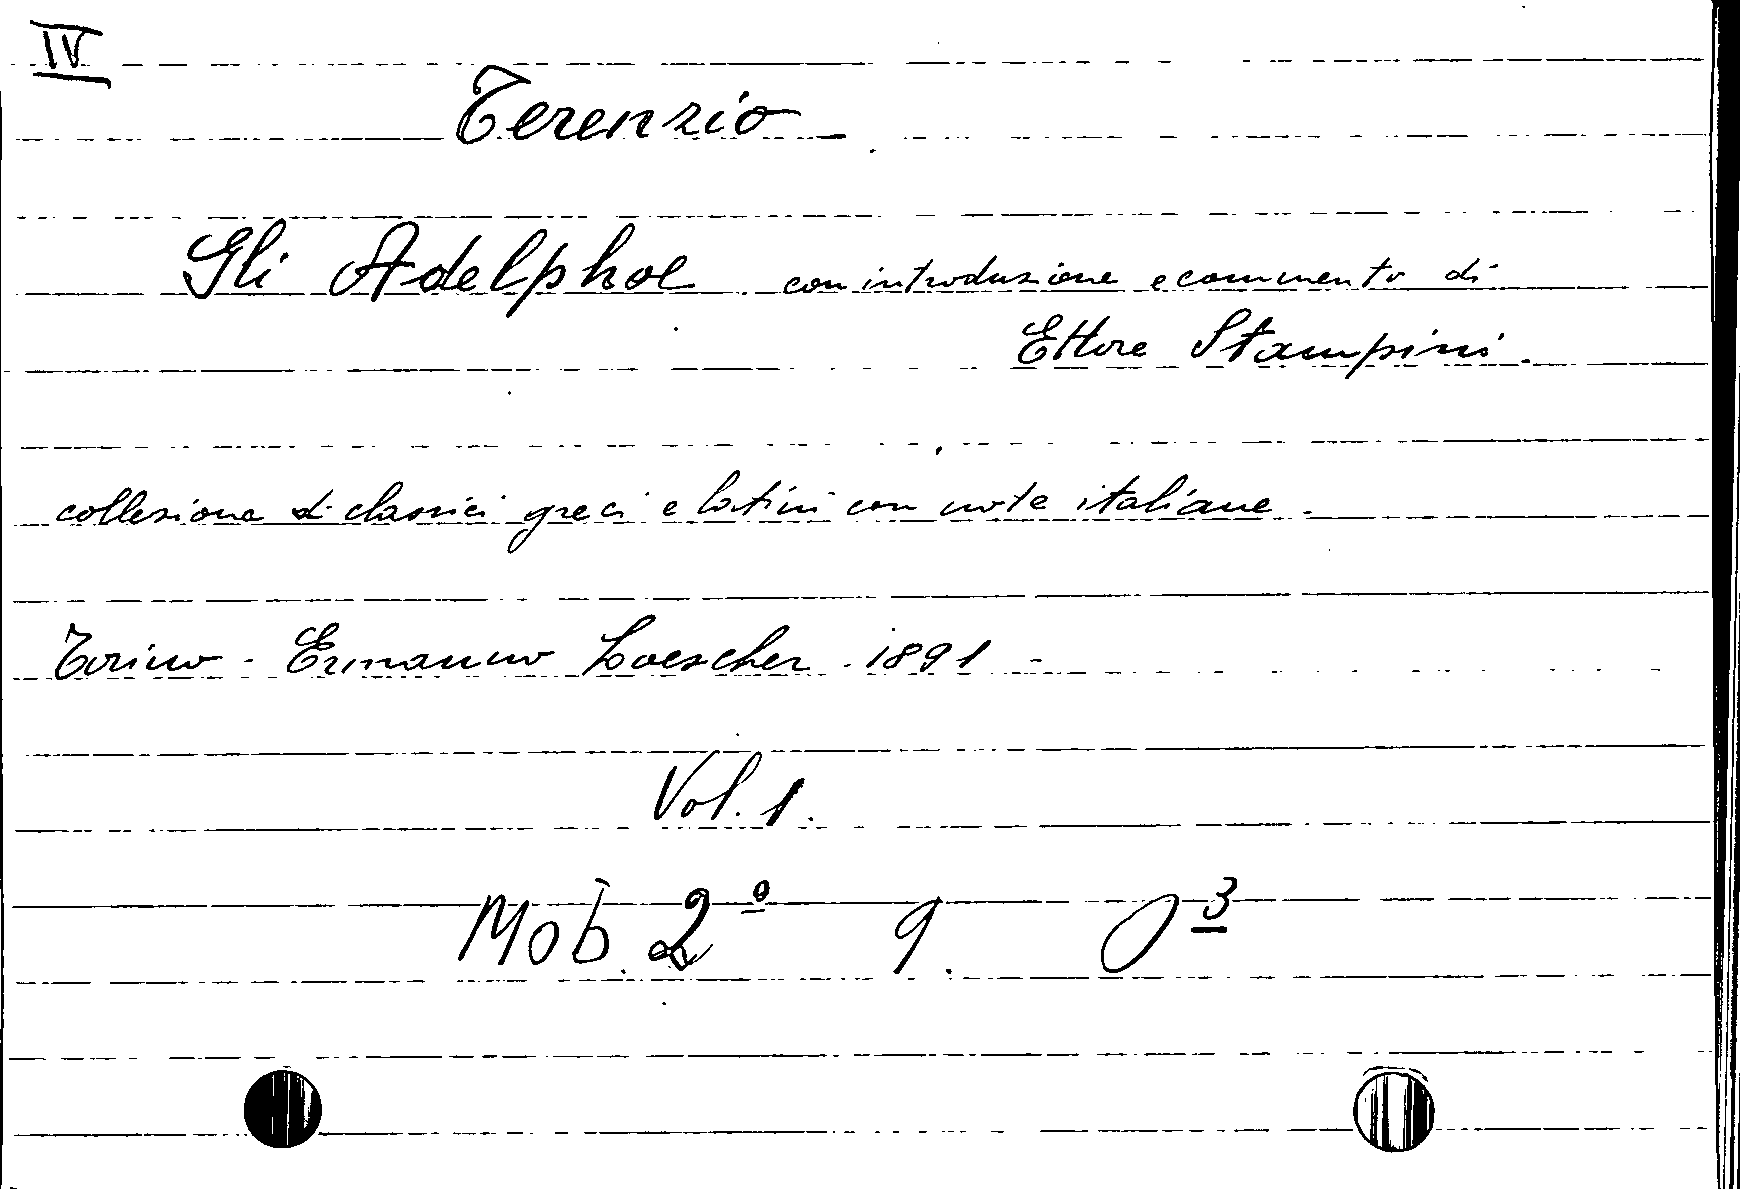 IV
Terenzio
Gli Adelphoe con introduzione e commento di
Ettore Stampini.
collezione di classici greci e latini con note italiane.
Torino - Ermanno Loescher. 1891 -
Vol. 1.
Mob. 2º 9.